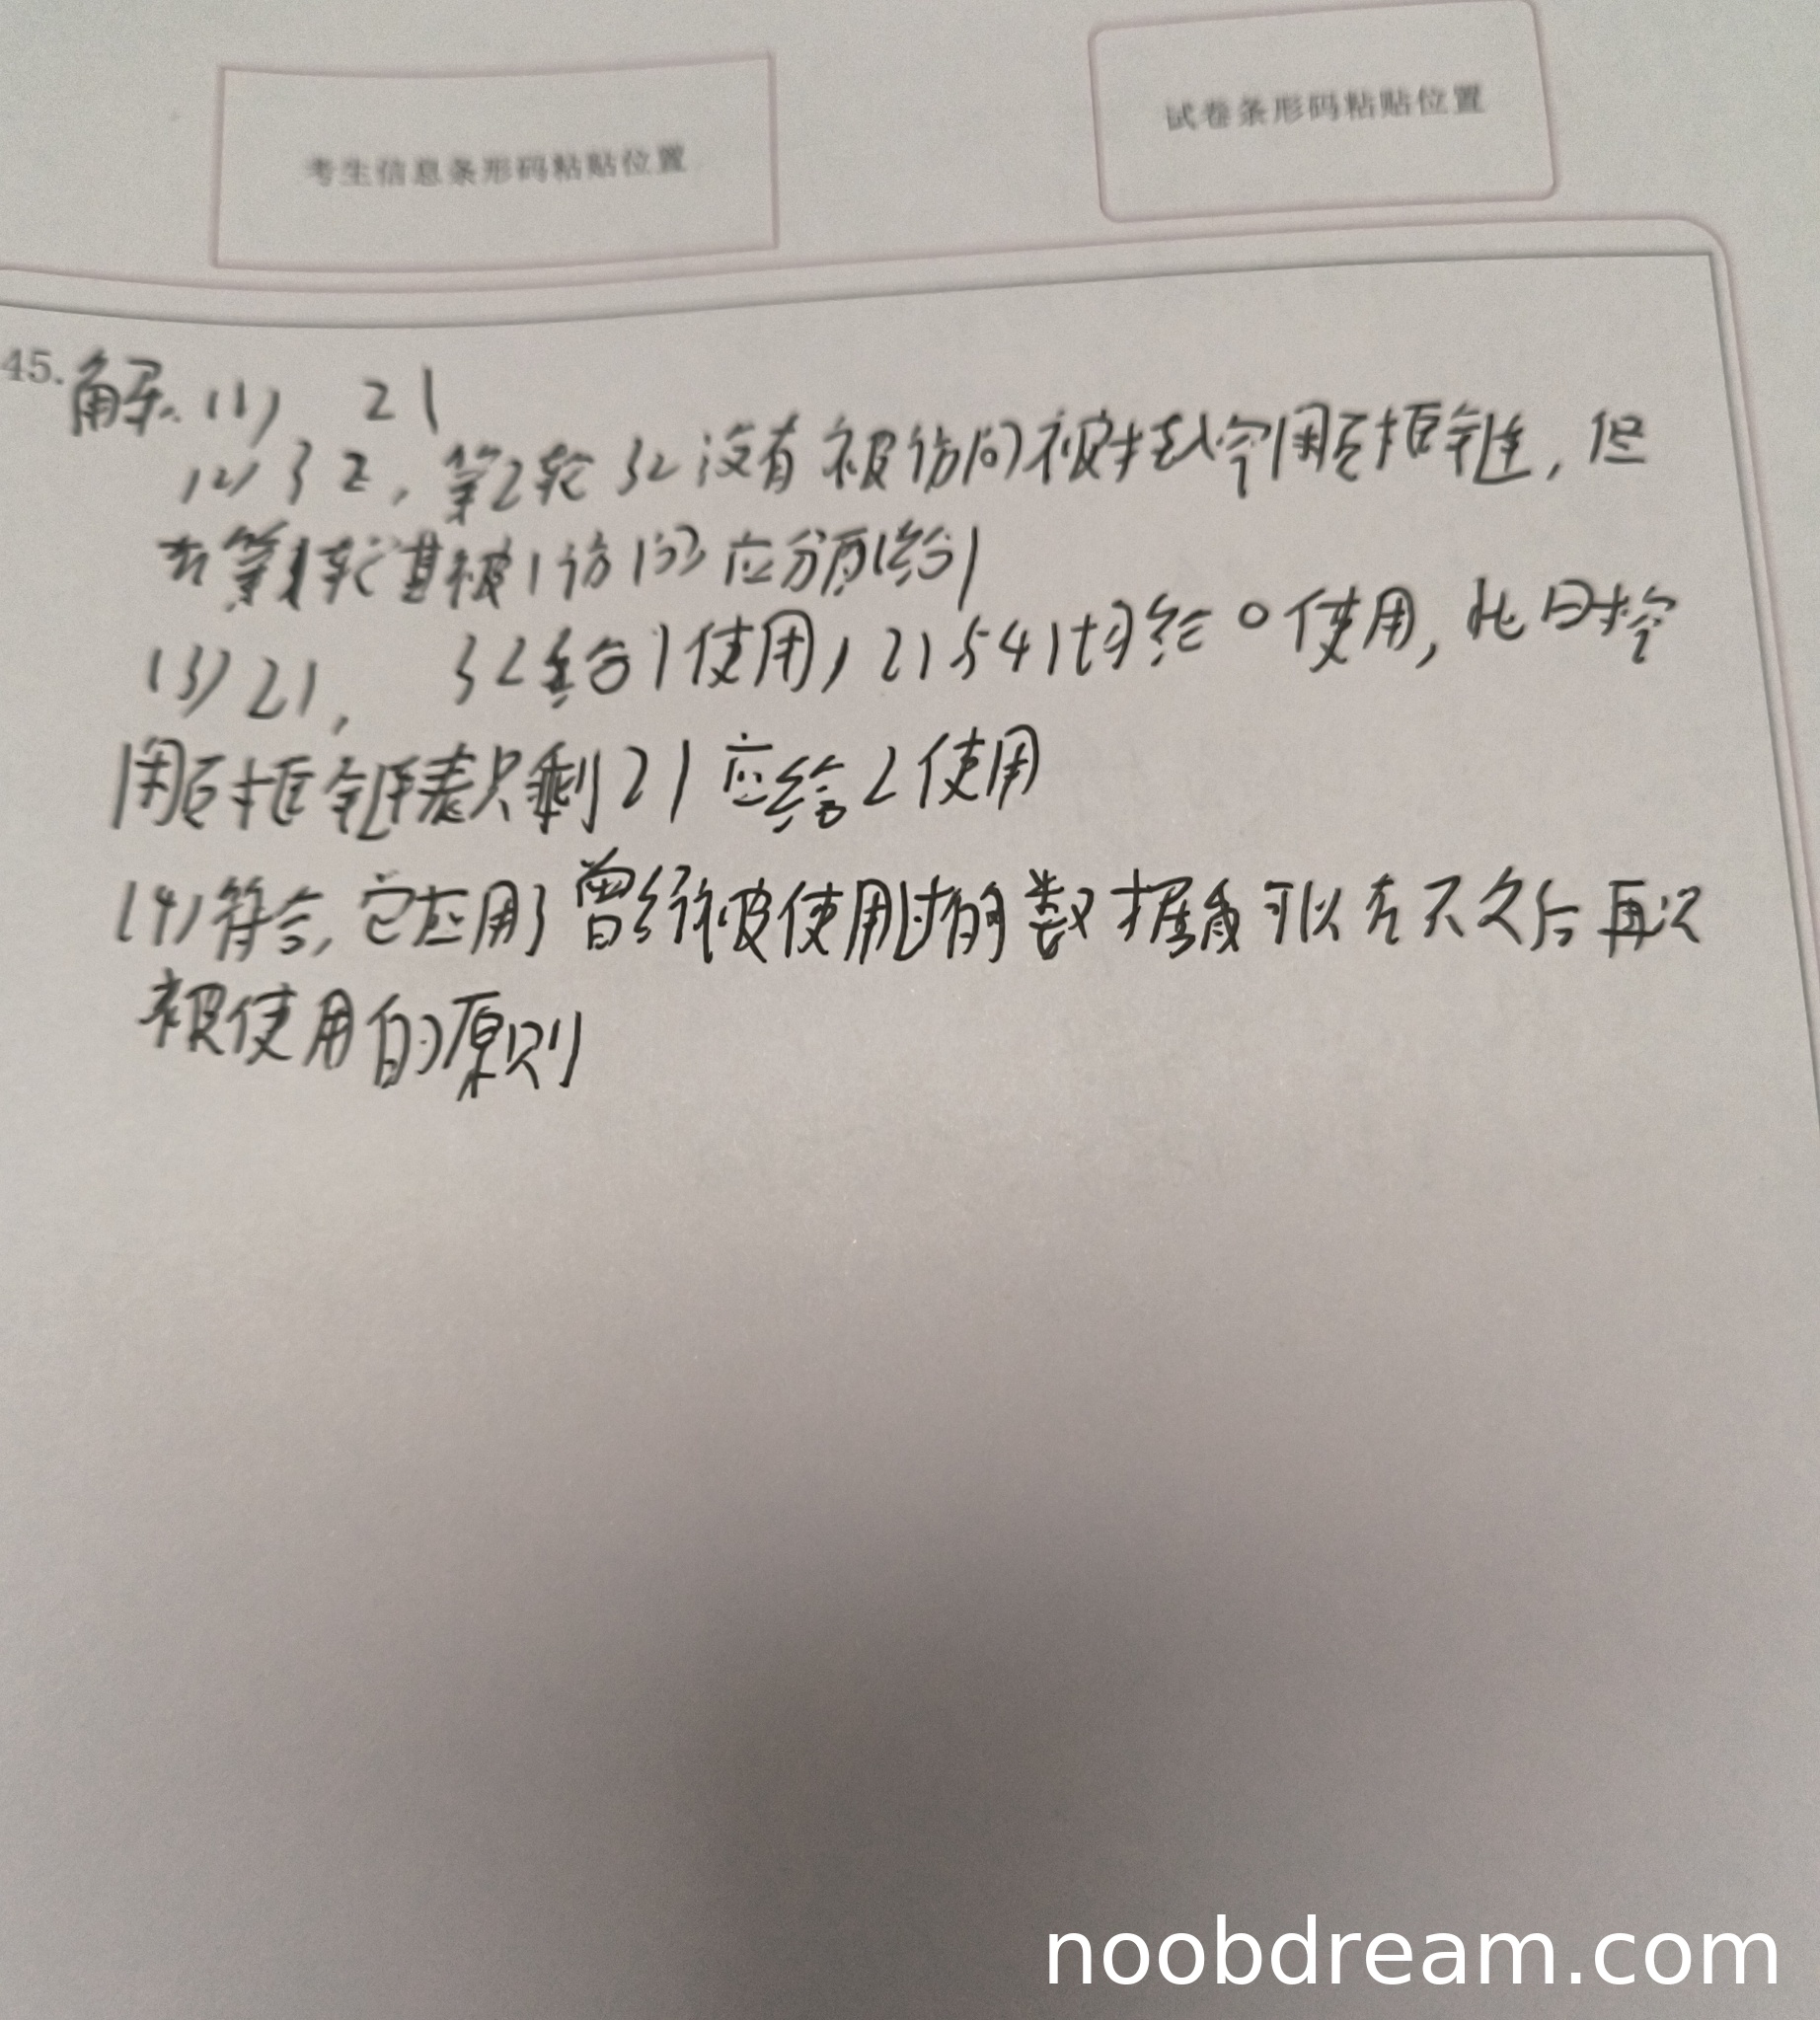 考生信息条形码粘贴位置
试卷条形码粘贴位置
45. 解. (1) 21
(2) 32, 第2轮 32 没有被访问被挂入空闲页框链, 但
在第1轮其被1访问 应分配给1
(3) 21, 32给1使用, 21 541均给0使用, 此时空
闲页框链表只剩21 应给2使用
(4) 符合, 它应用了曾经被使用过的数据 可以在不久后再次
被使用的原则
noobdream.com